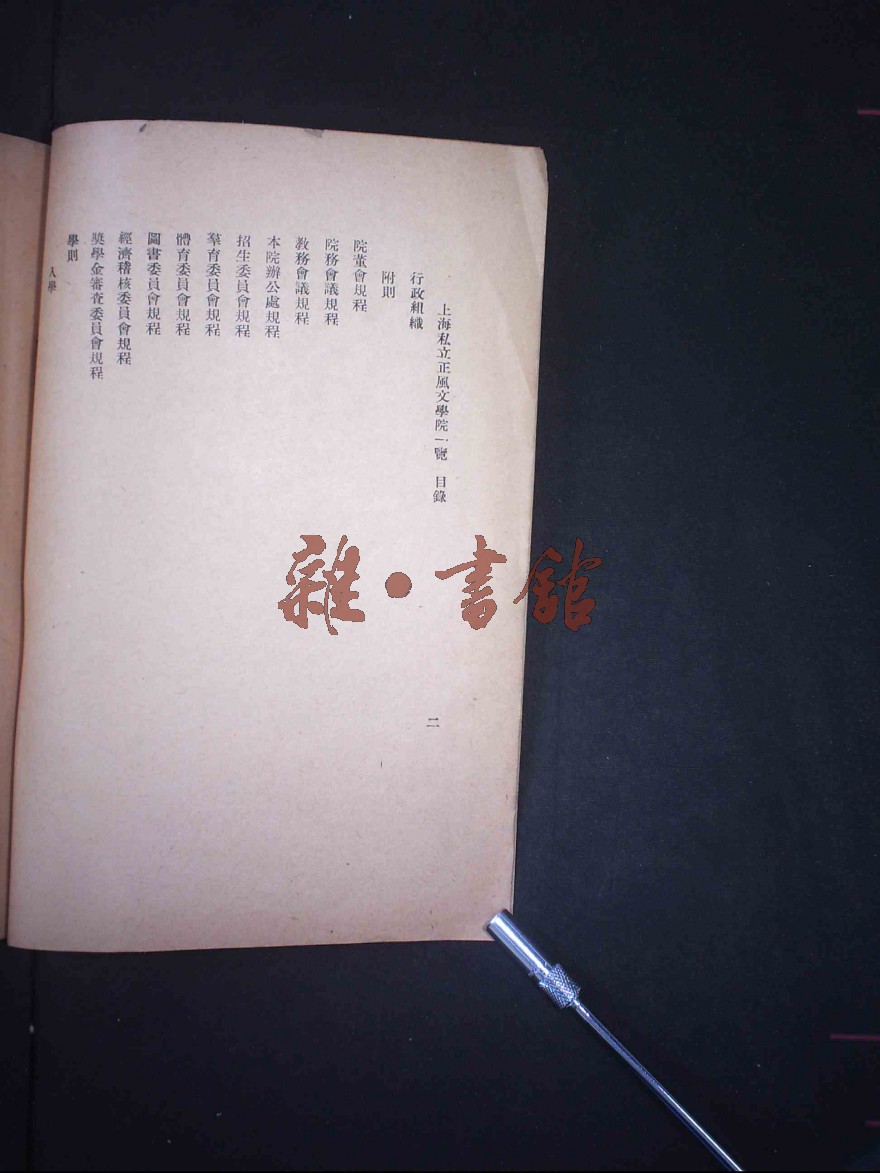 上海私立正風文學院一覽　目錄
二
行政組織
附則
院董會規程
院務會議規程
教務會議規程
本院辦公處規程
招生委員會規程
羣育委員會規程
體育委員會規程
圖書委員會規程
經濟稽核委員會規程
奬學金審查委員會規程
學則
入學
雜·書館